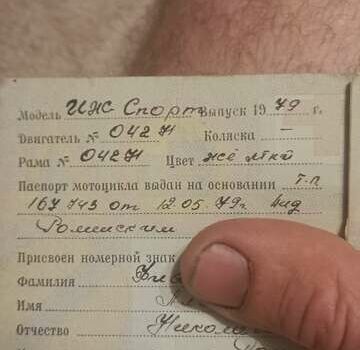 Модель ИЖ Спорт выпуск 1979 г.
Двигатель № 0427 Коляска —
Рама № 0427 Цвет жёлтый
Паспорт мотоцикла выдан на основании т-п
167743 от 12.05.79г.
Роменским
Присвоен номерной знак
Фамилия
Имя
Отчество Николае